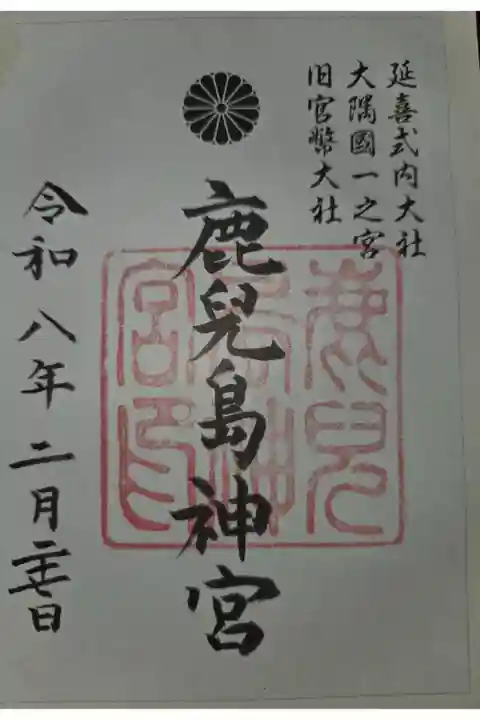 延喜式内大社
大隅國一之宮
旧官幣大社
鹿兒島神宮
令和八年二月二十七日
鹿兒
島神
宮印